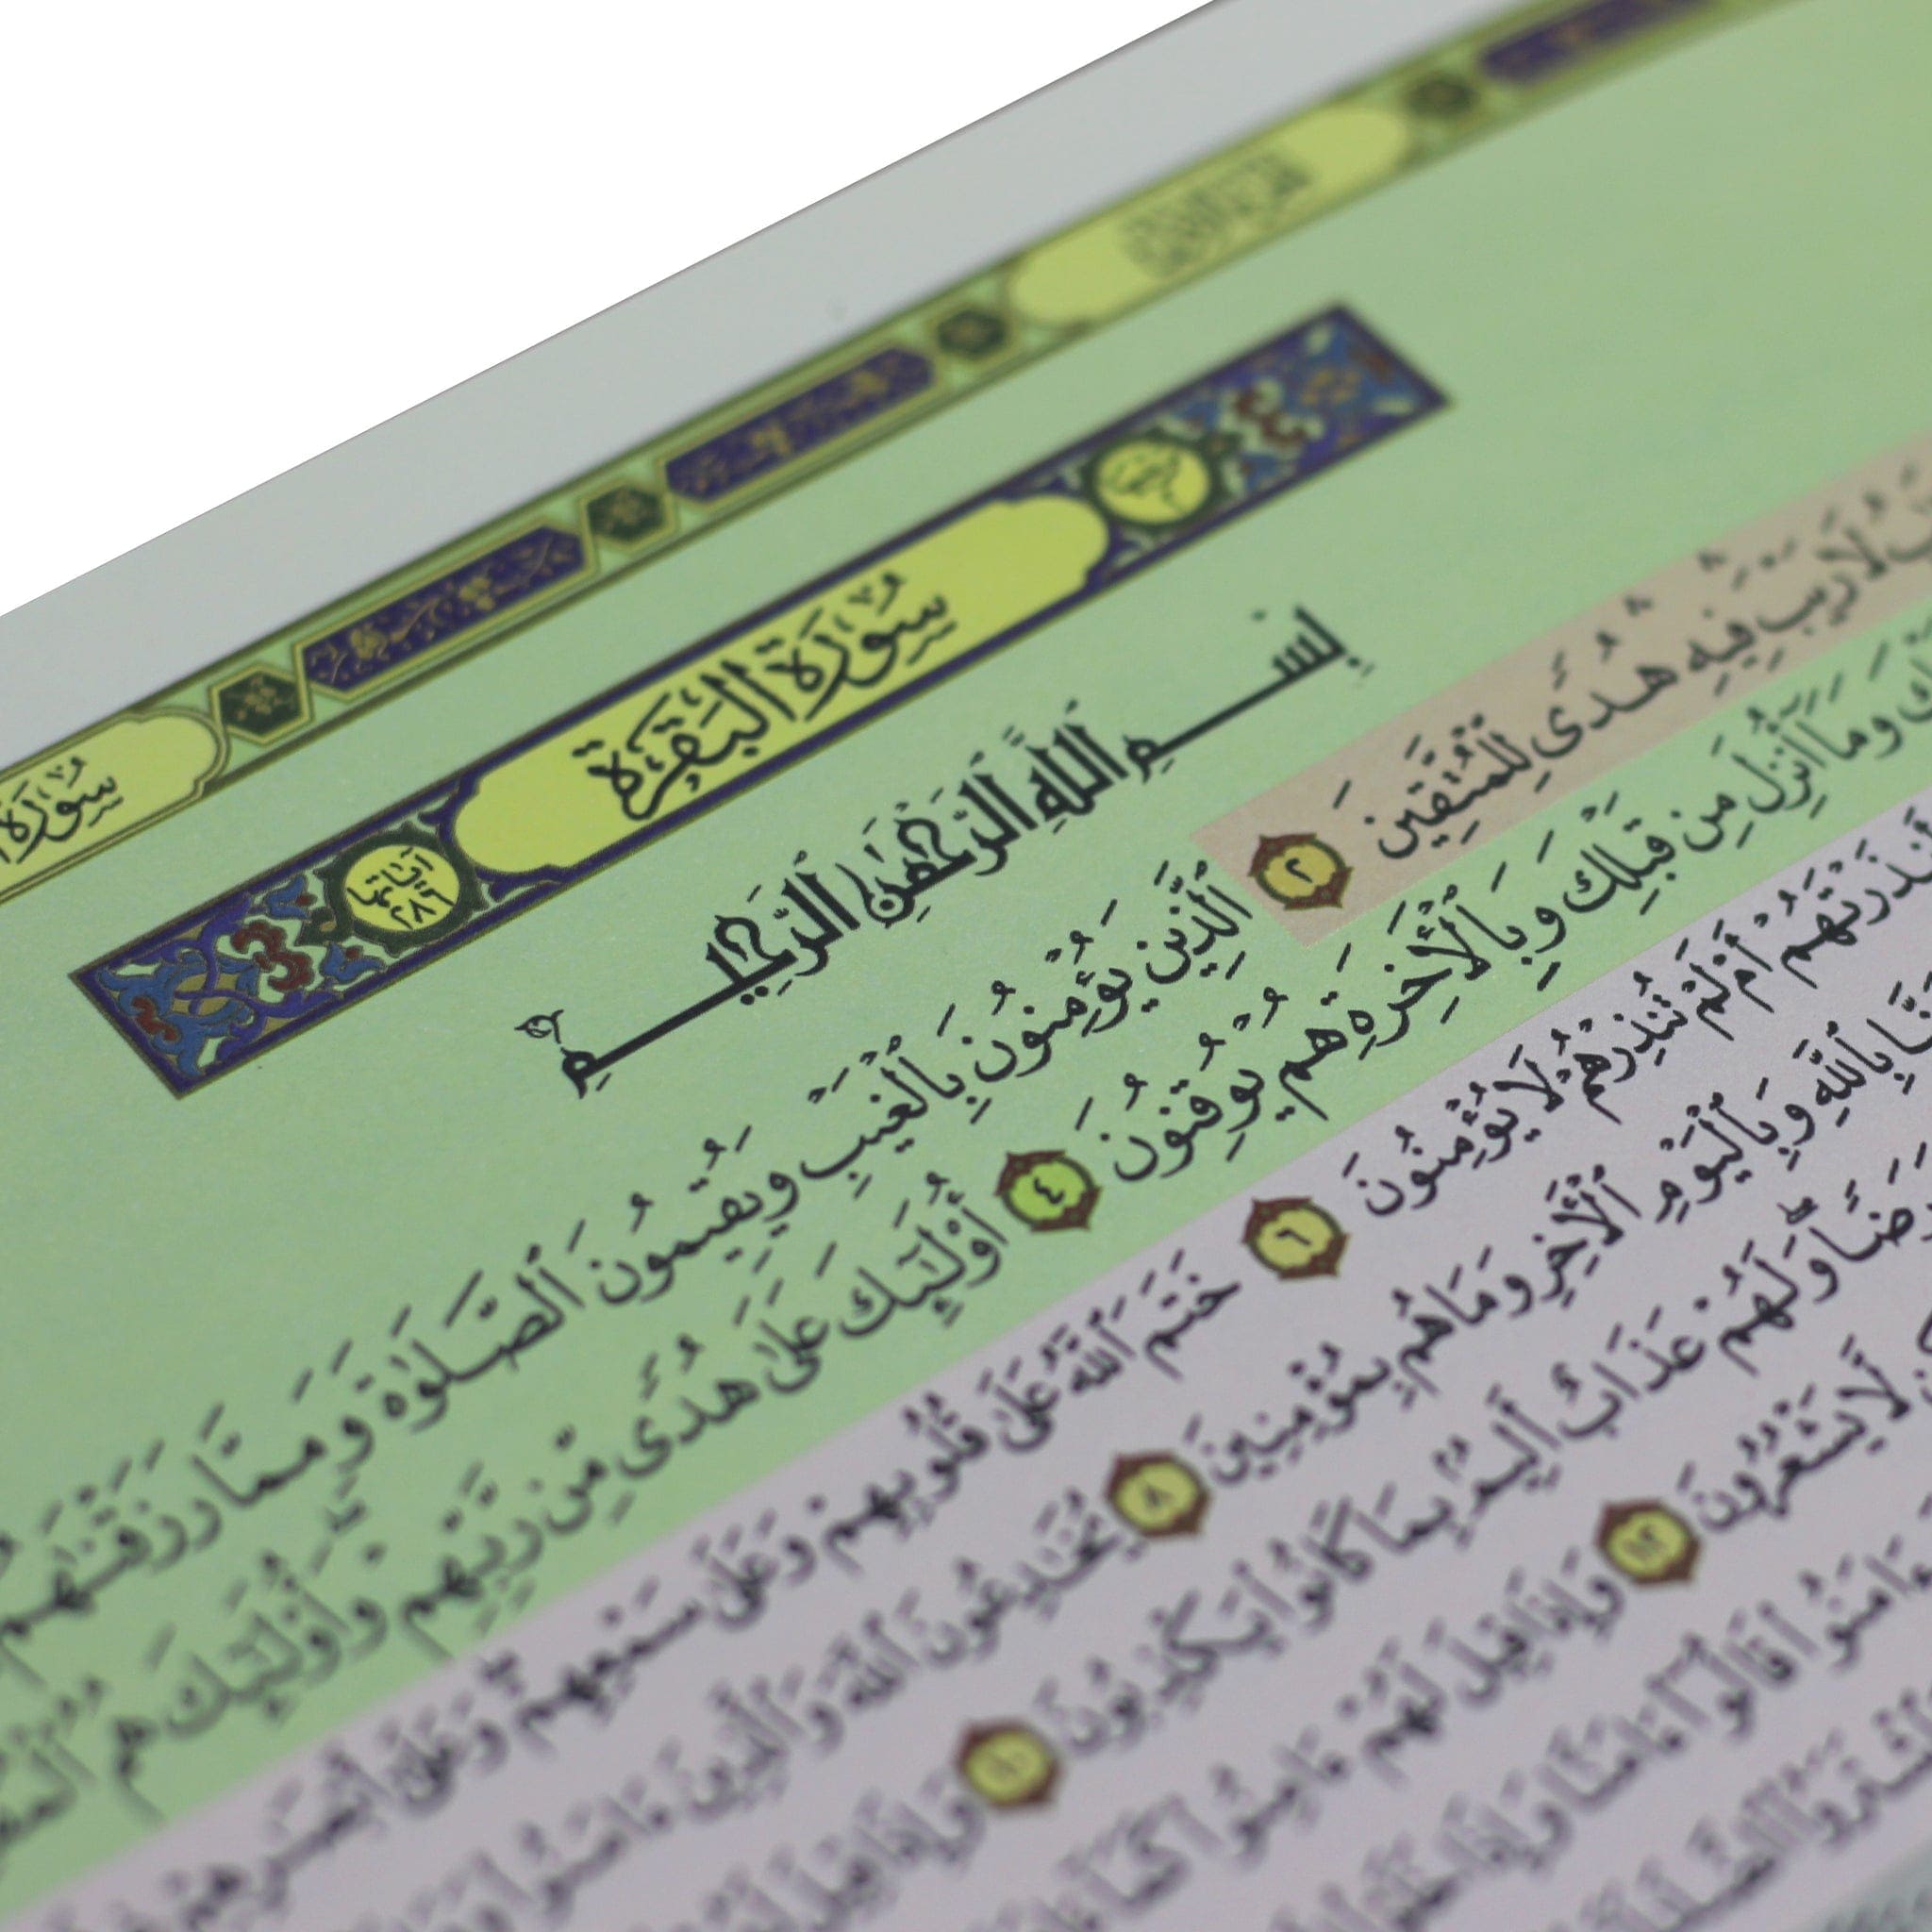 سُورَةُ
سُورَةُ البَقَرَةِ
آيَاتُهَا ٢٨٦
بِسْمِ ٱللَّهِ ٱلرَّحْمَٰنِ ٱلرَّحِيمِ
لَا رَيْبَ فِيهِ هُدًى لِّلْمُتَّقِينَ ٢ ٱلَّذِينَ يُؤْمِنُونَ بِٱلْغَيْبِ وَيُقِيمُونَ ٱلصَّلَوٰةَ وَمِمَّا رَزَقْنَٰهُمْ
وَمَآ أُنزِلَ مِن قَبْلِكَ وَبِٱلْأَخِرَةِ هُمْ يُوقِنُونَ ٤ أُوْلَٰٓئِكَ عَلَىٰ هُدًى مِّن رَّبِّهِمْ وَأُوْلَٰٓئِكَ هُمُ
ءَأَنذَرْتَهُمْ أَمْ لَمْ تُنذِرْهُمْ لَا يُؤْمِنُونَ ٦ خَتَمَ ٱللَّهُ عَلَىٰ قُلُوبِهِمْ وَعَلَىٰ سَمْعِهِمْ وَعَلَىٰٓ أَبْصَٰرِهِمْ
بِٱللَّهِ وَبِٱلْيَوْمِ ٱلْأَخِرِ وَمَا هُم بِمُؤْمِنِينَ ٨ يُخَٰدِعُونَ ٱللَّهَ وَٱلَّذِينَ ءَامَنُوا۟
وَلَهُمْ عَذَابٌ أَلِيمٌۢ بِمَا كَانُوا۟ يَكْذِبُونَ ١٠ وَإِذَا قِيلَ
لَّا يَشْعُرُونَ ١٢ وَإِذَا قِيلَ لَهُمْ ءَامِنُوا۟ كَمَآ
ءَامَنُوا۟ قَالُوٓا۟ ءَامَنَّا وَإِذَا